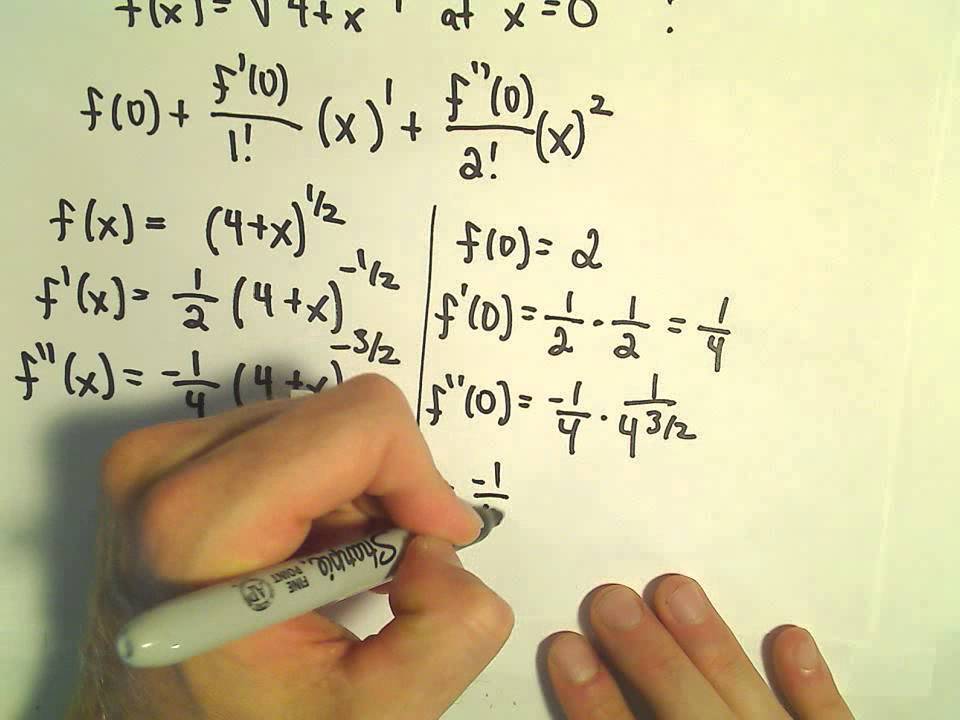 f(x) = √4+x at x = 0 ?
f(0) + f'(0)/1! (x)^1 + f''(0)/2! (x)^2
f(x) = (4+x)^1/2
f'(x) = 1/2 (4+x)^-1/2
f''(x) = -1/4 (4+x)^-3/2
f(0) = 2
f'(0) = 1/2 · 1/2 = 1/4
f''(0) = -1/4 · 1/4^3/2
-1
Sharpie.
FINE
POINT
AP